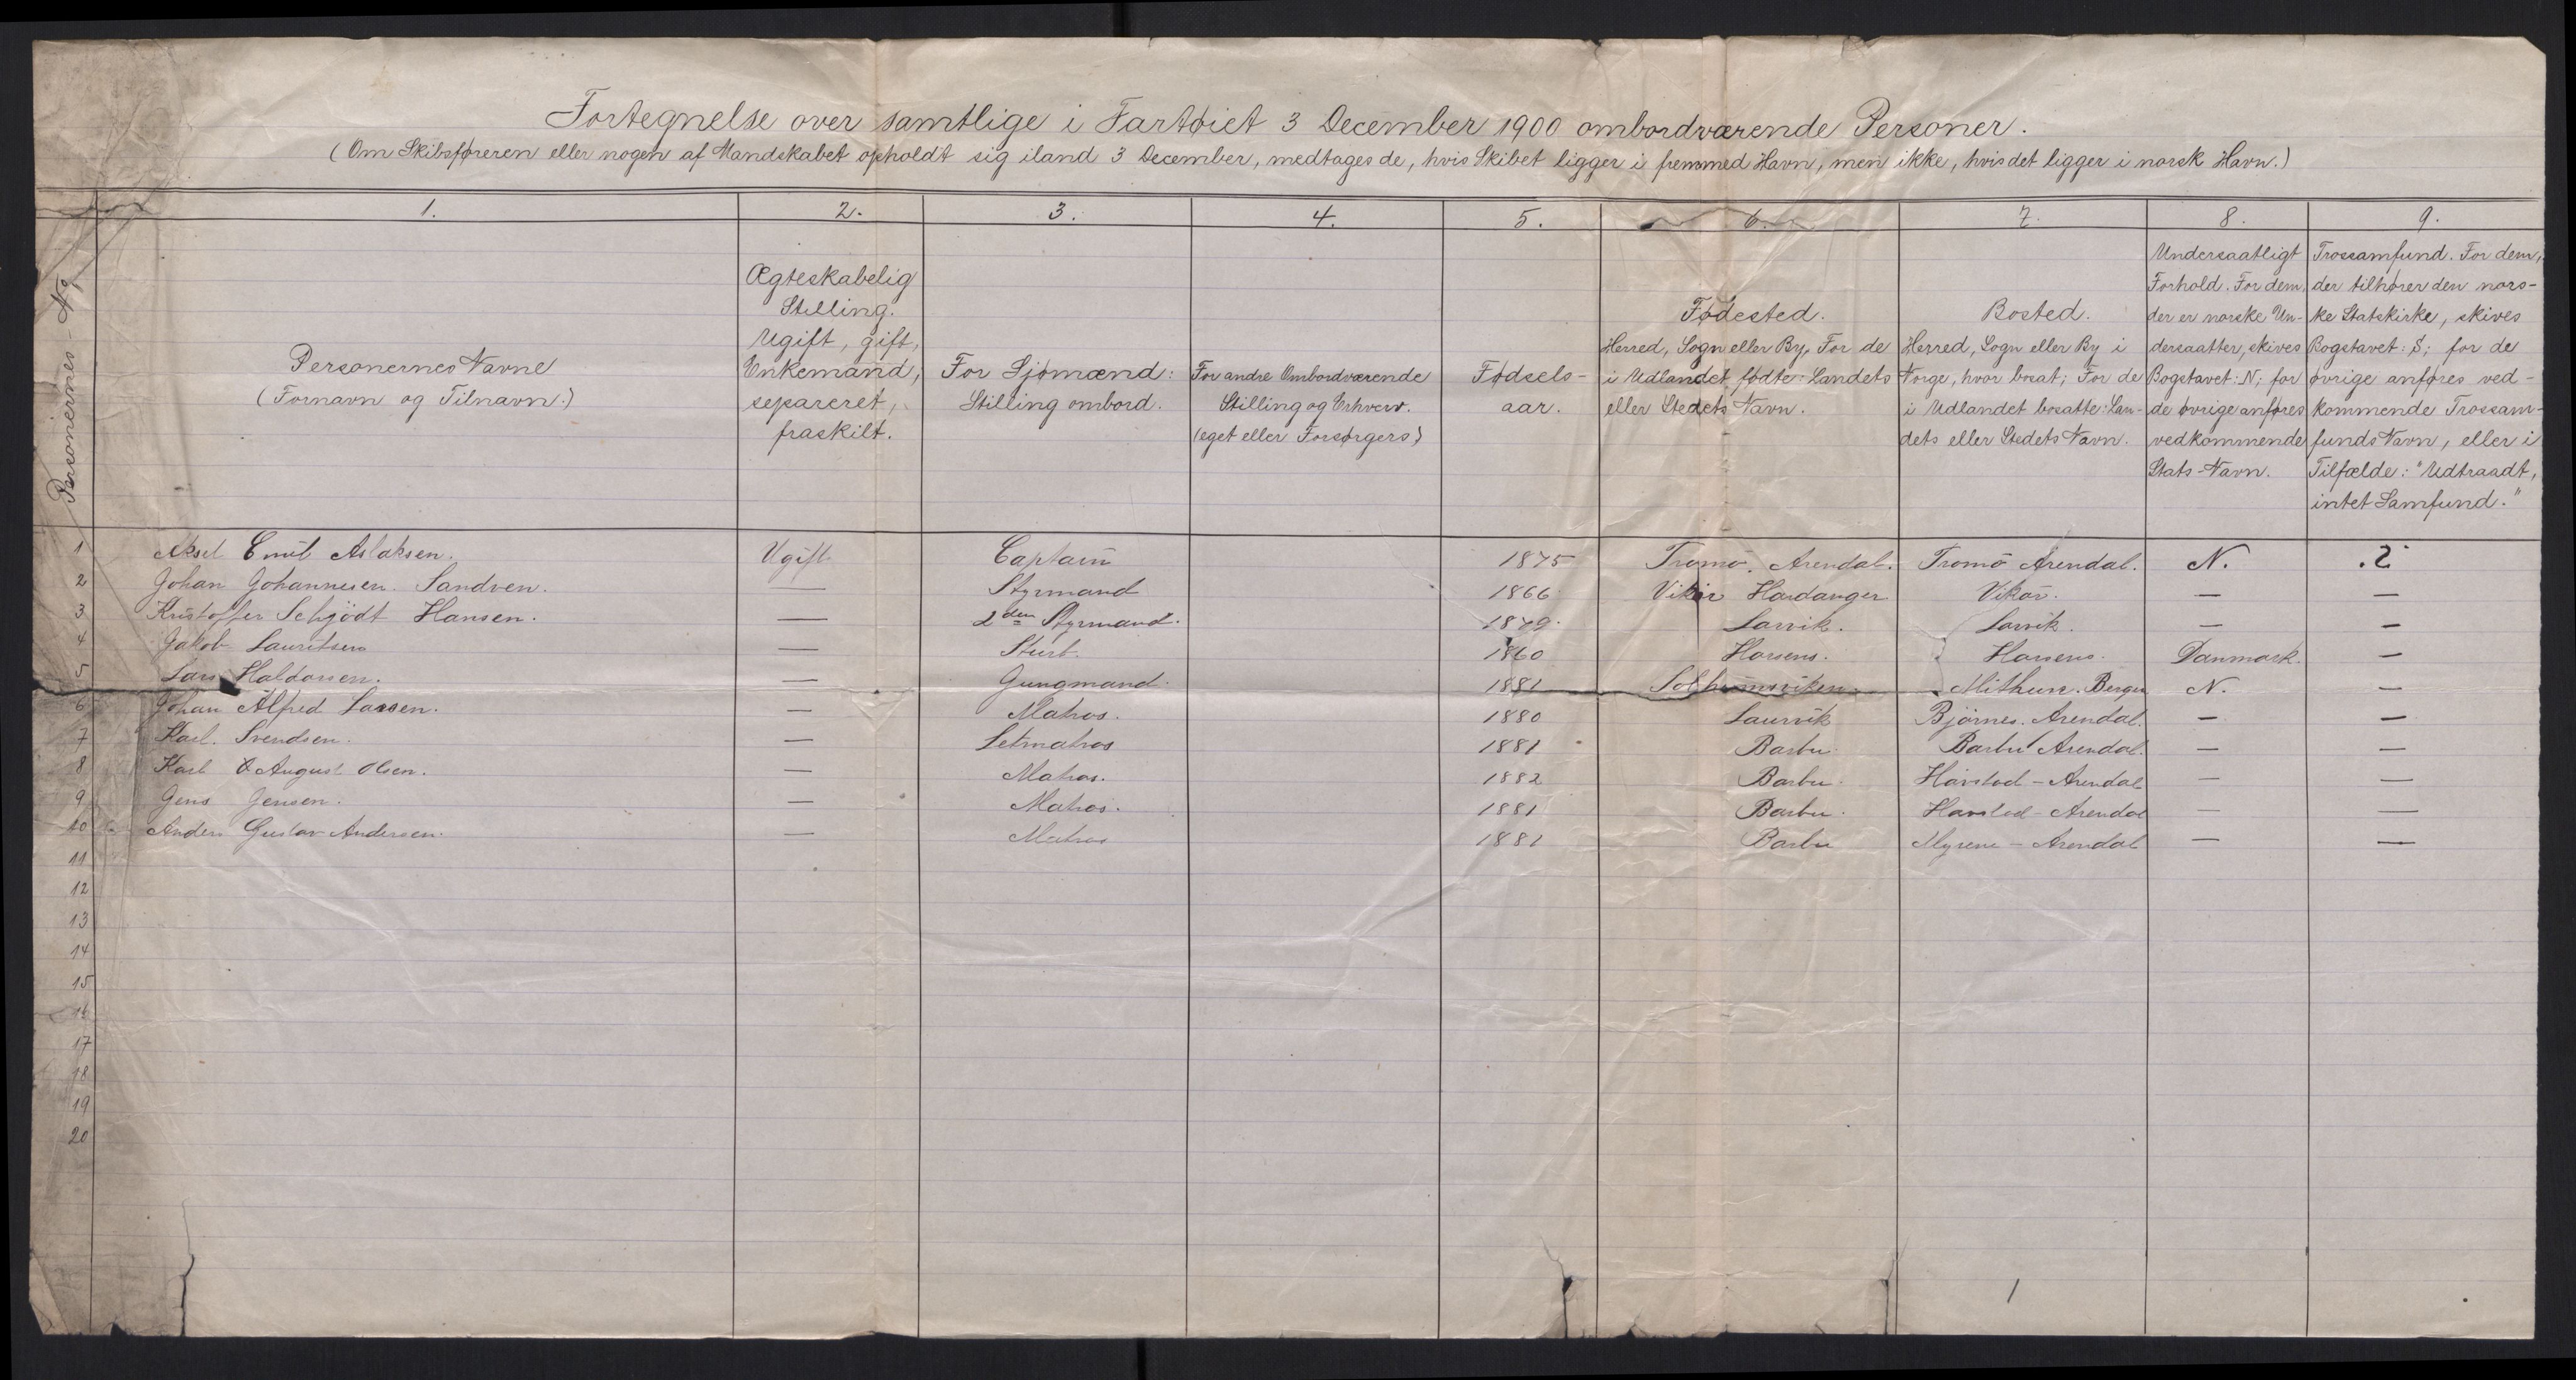 Fortegnelse over samtlige i Fartøiet 3 December 1900 ombordværende Personer.
(Om Skibsføreren eller nogen af Mandskabet opholdt sig iland 3 December, medtages de, hvis Skibet ligger i fremmed Havn, men ikke, hvis det ligger i norsk Havn.)
1. 2. 3. 4. 5. 6. 7. 8. 9.
Personernes - No
Personernes Navne
(Fornavn og Tilnavn.)
Ægteskabelig
Stilling.
Ugift, gift,
Enkemand,
separeret,
fraskilt.
For Sjømænd:
Stilling ombord.
For andre Ombordværende
Stilling og Erhverv.
(eget eller Forsørgers)
Fødsels-
aar.
Fødested.
Herred, Sogn eller By, For de
i Udlandet fødte: Landets
eller Stedets Navn.
Bosted.
Herred, Sogn eller By i
Norge, hvor bosat; For de
i Udlandet bosatte: Lan-
dets eller Stedets Navn.
Undersaatligt
Forhold. For dem,
der er norske Un-
dersaatter, skives
Bogstavet: N; for
de øvrige anføres
vedkommende
Stats-Navn.
Trossamfund. For dem,
der tilhører den nors-
ke Statskirke, skives
Bogstavet: S; for de
øvrige anføres ved-
kommende Trossam-
funds Navn, eller i
Tilfælde: "Udtraadt,
intet Samfund."
1 Aksel Emil Aslaksen. Ugift Captain 1875 Tromö. Arendal. Tromö Arendal. N. S.
2 Johan Johannesen. Sandven. — Styrmand 1866 Vikör Hardanger Vikör. — —
3 Kristoffer Schjödt Hansen. — 2den Styrmand. 1879. Larvik. Larvik. — —
4 Jakob Lauritsen — Stuert. 1860 Horsens. Horsens. Danmark. —
5 Lars Haldorsen. — Jungmand. 1881 Solheimsviken. Mithun. Bergen N. —
6 Johan Alfred Larsen. — Matros. 1880 Laurvik Björnes. Arendal. — —
7 Karl. Svendsen. — Letmatros 1881 Barbu. Barbu Arendal. — —
8 Karl August Olsen. — Matros. 1882 Barbu. Harstad - Arendal — —
9 Jens Jensen. — Matros. 1881 Barbu. Harstad - Arendal — —
10 Anders Gustav Andersen. — Matros 1881 Barbu Myrene - Arendal — —
11
12
13
14
15
16
17
18
19
20